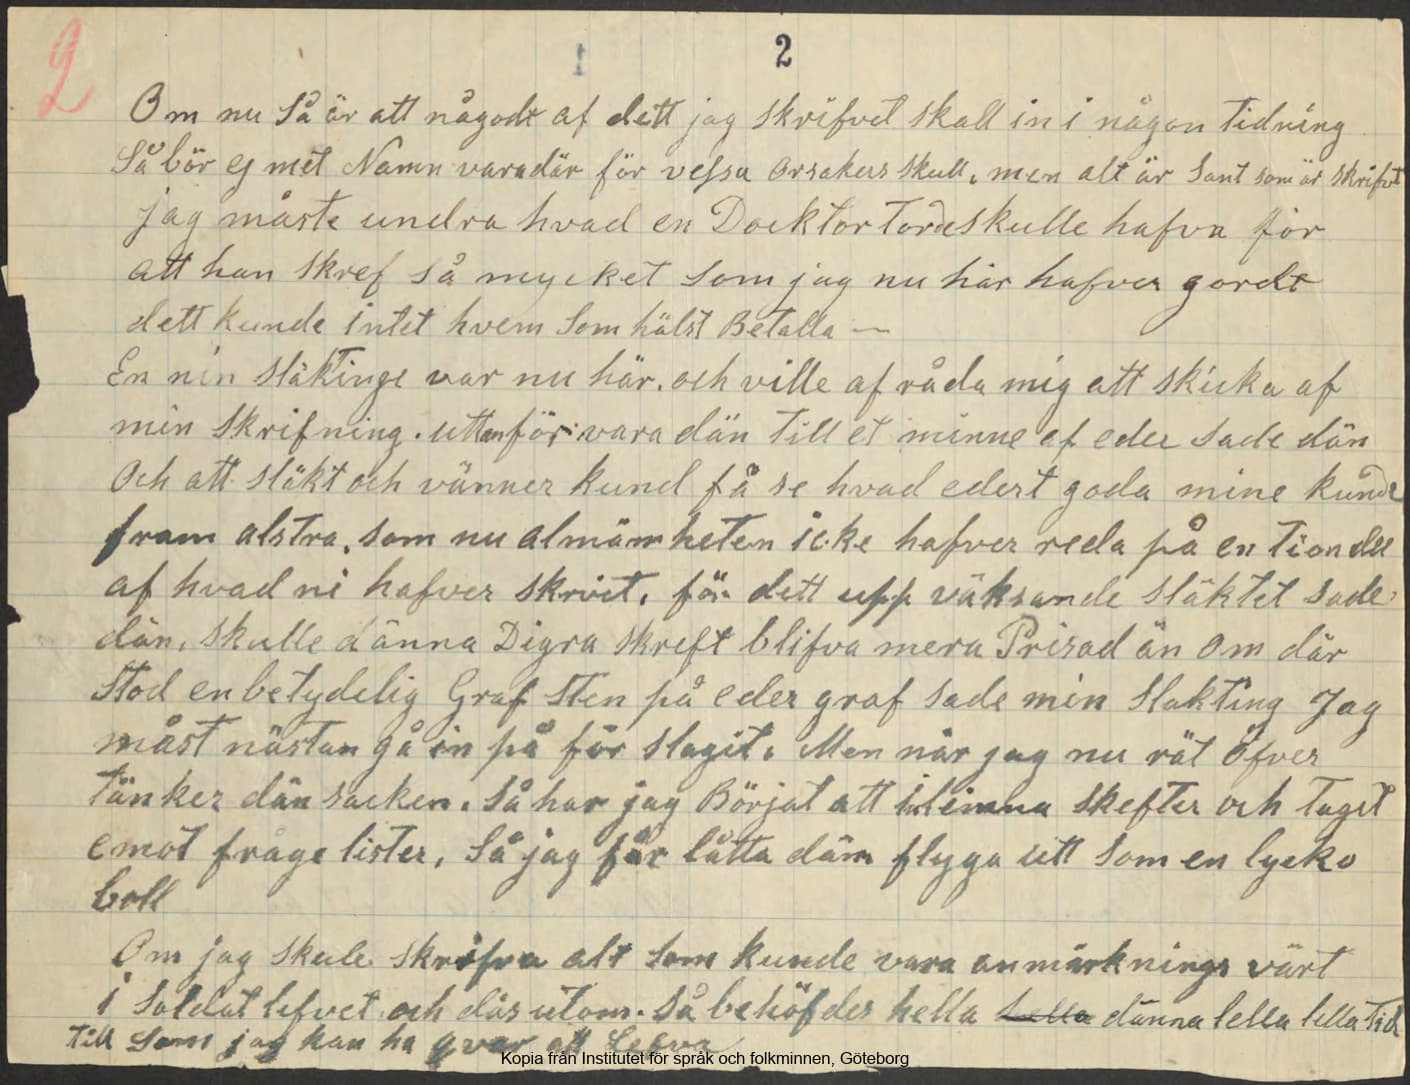 2
1 2
Om nu Så är att någodt af dett jag skrifvet skall in i någon tidning
Så bör ej met Namn vara där för vessa orsakers skull. men alt är Sant som är skrifvet
jag måste undra hvad en Docktor torde skulle hafva för
att han skref så mycket Som jag nu här hafver gordt
dett kunde intet hvem Som hälst Betalla —
En min släktinge var nu här. och ville af råda mig att skicka af
min skrifning. uttan för vara dän till et minne af eder sade dän
Och att släkt och vänner kund få se hvad edert goda mine kunde
fram alstra. som nu almänheten icke hafver reda på en tiondel
af hvad ni hafver skrivit. för dett upp väksande släktet sade
dän. skulle dänna Digra skreft blifva mera Prisad än om där
Stod en betydelig Graf Sten på eder graf sade min Slakting Jag
måst nästan gå in på för slagit. Men når jag nu rät öfver
tänker dän sacken. Så har jag Börjat att inlemna skefter och taget
emot fråge lister. Så jag får låtta däm flyga utt Som en lycko
boll
Om jag skule skrifva alt Som kunde vara anmärknings värt
i Soldat lefvet och där utom. Så behöfdes hella dänna lella lella tid
till Som jag kan ha qvar att Lefva
Kopia från Institutet för språk och folkminnen, Göteborg